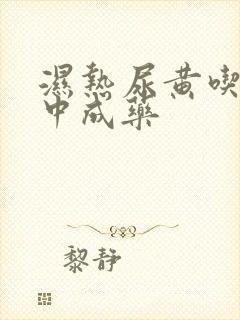 濕熱尿黄喫
中成藥
黎静